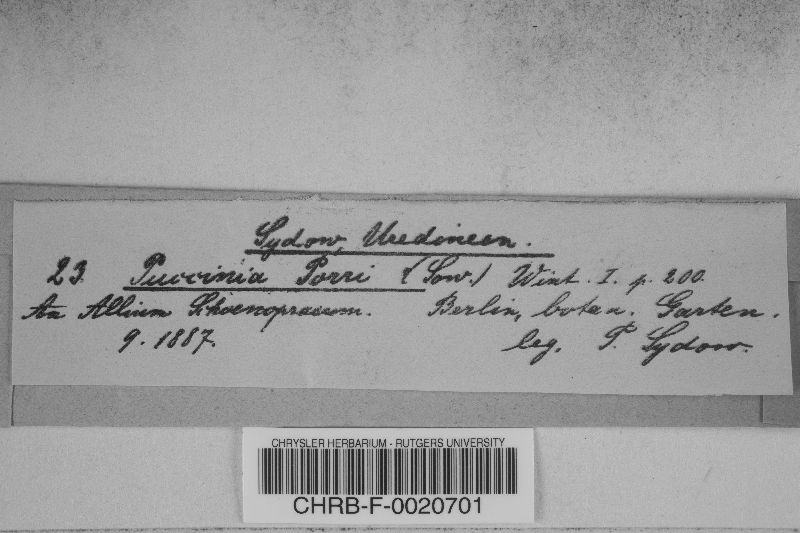 Sydow, Uredineen.
23. Puccinia Porri (Sow.) Wint. I. p. 200.
An Allium Schoenoprasum. Berlin, botan. Garten.
9. 1887. leg. P. Sydow.
CHRYSLER HERBARIUM - RUTGERS UNIVERSITY
CHRB-F-0020701